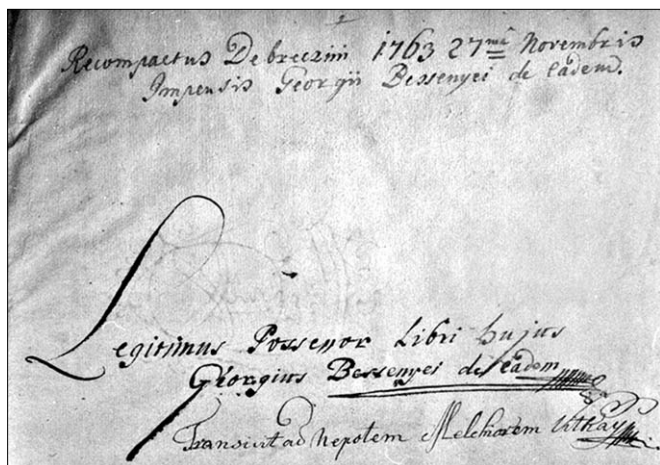 Recompactus Debreczini 1763 27mâ Novembris
Impensis Georgii Bessenyei de Eadem.
Legitimus Possessor Libri hujus
Georgius Bessenyei de Eadem
Transivit ad Nepotem Melchiorem Vitkay